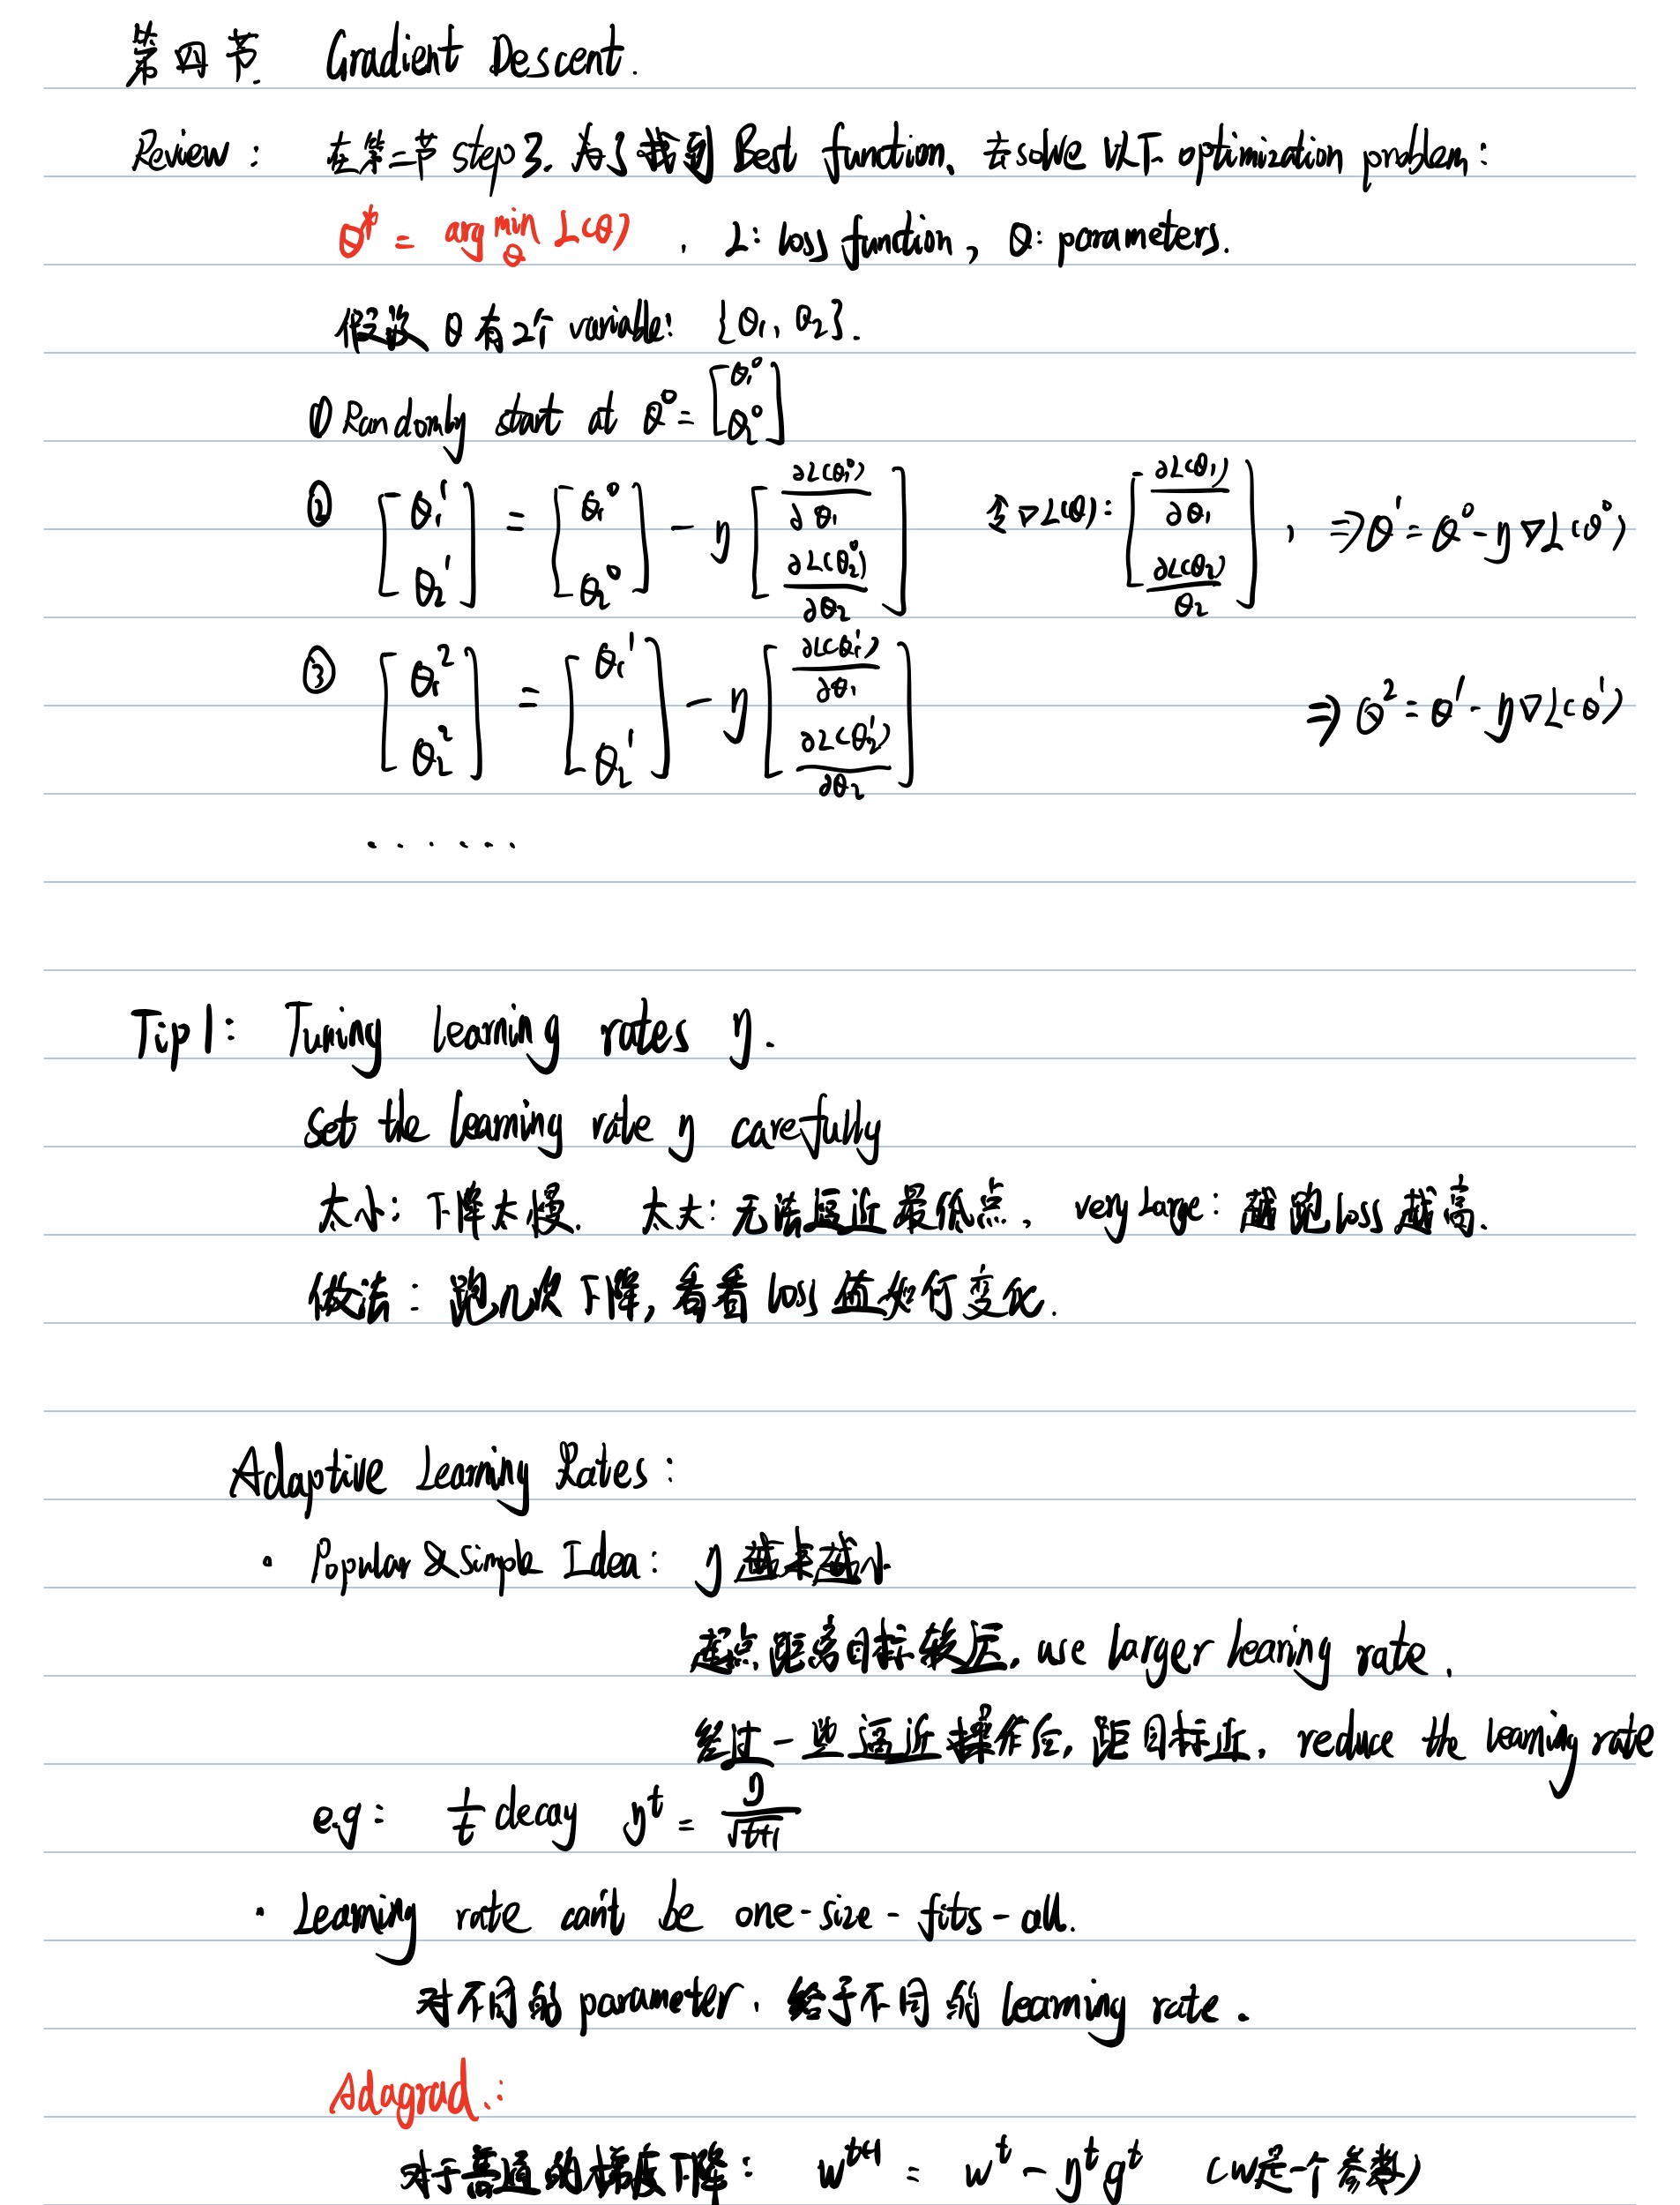 第四节. Gradient Descent.
Review: 在第二节 step 3. 为了找到 Best function, 去 solve 以下 optimization problem:
θ* = arg min_θ L(θ) , L: loss function, θ: parameters.
假设 θ 有2个 variable: {θ₁, θ₂}.
① Randomly start at θ⁰ = [θ₁⁰ θ₂⁰]
② [θ₁¹ θ₂¹] = [θ₁⁰ θ₂⁰] - η [∂L(θ₁⁰)/∂θ₁ ∂L(θ₂⁰)/∂θ₂] 令 ∇L(θ): [∂L(θ₁)/∂θ₁ ∂L(θ₂)/θ₂] , ⇒ θ¹ = θ⁰ - η∇L(θ⁰)
③ [θ₁² θ₂²] = [θ₁¹ θ₂¹] - η [∂L(θ₁¹)/∂θ₁ ∂L(θ₂¹)/∂θ₂] ⇒ θ² = θ¹ - η∇L(θ¹)
......
Tip 1: Tuning learning rates η.
set the learning rate η carefully
太小: 下降太慢. 太大: 无法逼近最低点, very Large: 越跑 loss 越高.
做法: 跑几次下降, 看看 loss 值如何变化.
Adaptive Learning Rates:
· Popular & simple Idea: η 越来越小
起点距离目标较远, use larger learing rate.
经过一些逼近操作后, 距目标近, reduce the learning rate
e.g: 1/t decay ηᵗ = η/√(t+1)
· Learning rate can't be one-size-fits-all.
对不同的 parameter, 给予不同的 learning rate.
Adagrad.:
对于普通的梯度下降: wᵗ⁺¹ = wᵗ - ηᵗgᵗ (w是一个参数)